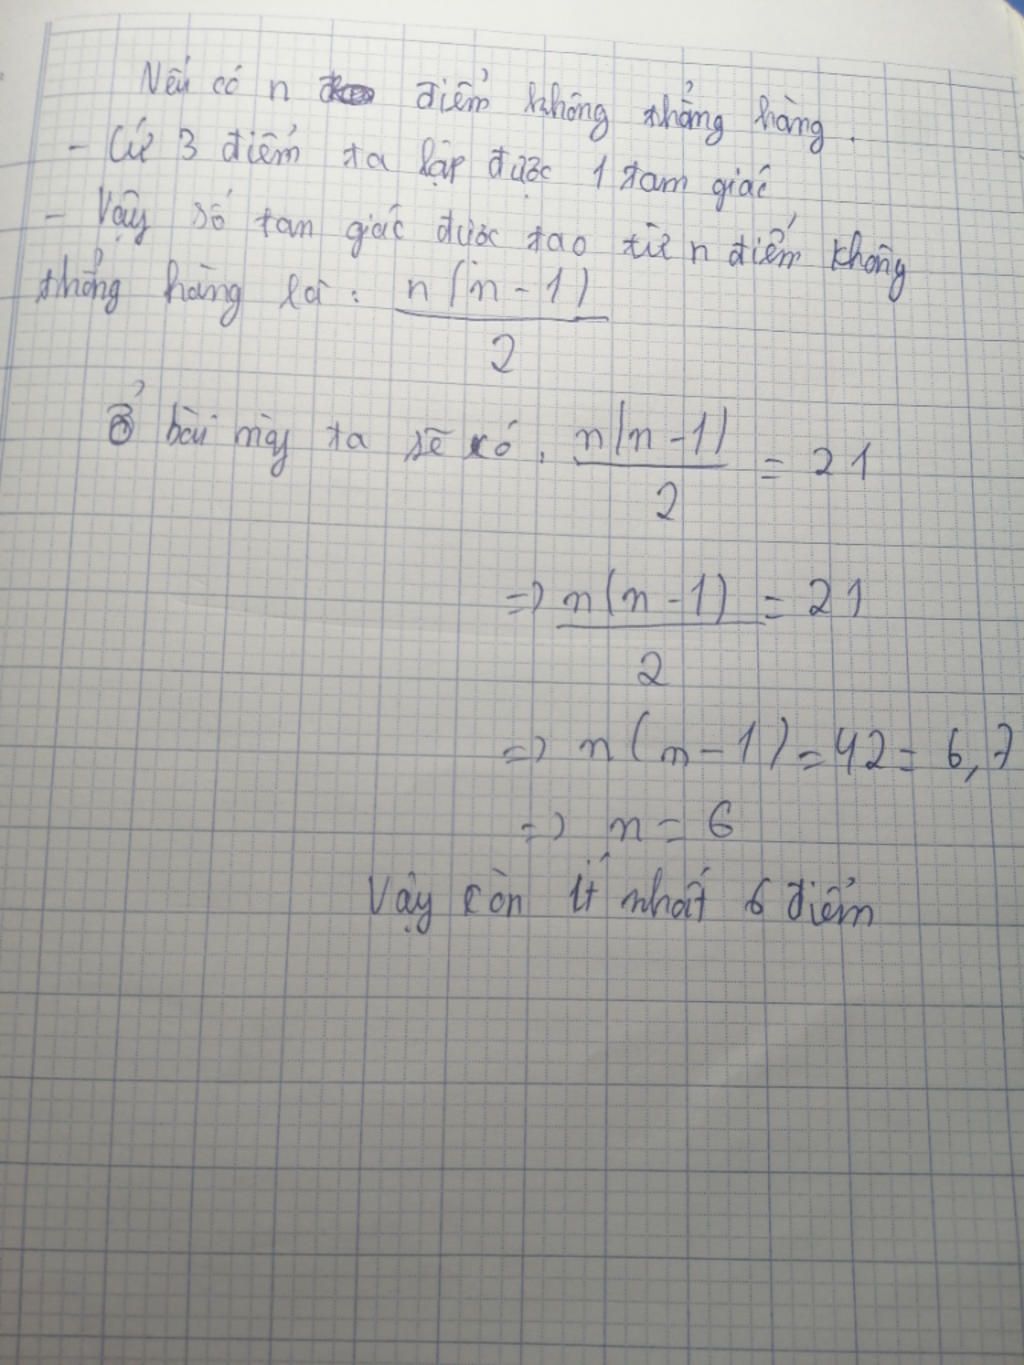 Nếu có n điểm không thẳng hàng.
- Cứ 3 điểm ta lập được 1 tam giác
- Vậy số tan giác được tao từ n điểm không
thẳng hàng là: n(n-1)
2
Ở bài này ta sẽ có. n(n-1) = 21
2
=> n(n-1) = 21
2
=> n(n-1) = 42 = 6,7
=> n = 6
Vậy còn ít nhất 6 điểm